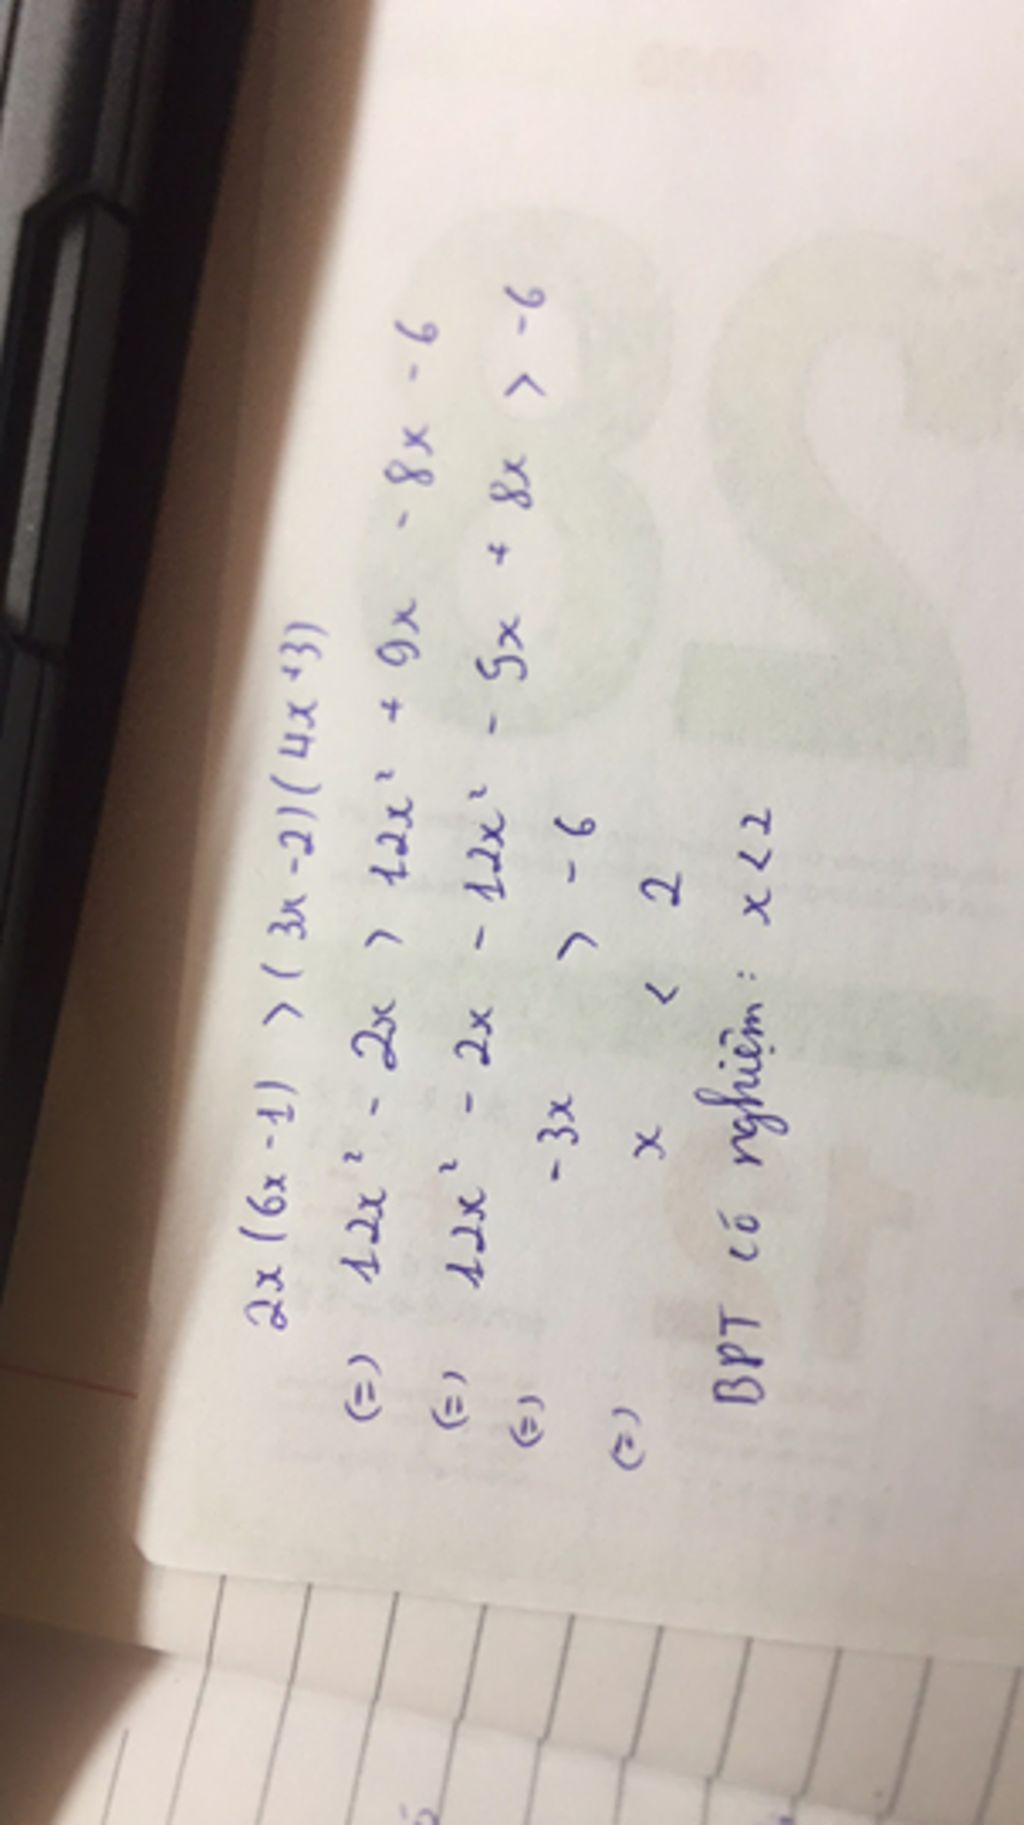 2x(6x-1) > (3x-2)(4x+3)
(=) 12x² - 2x > 12x² + 9x - 8x - 6
(=) 12x² - 2x - 12x² - 9x + 8x > -6
(=) -3x > -6
(=) x < 2
BPT có nghiệm: x < 2